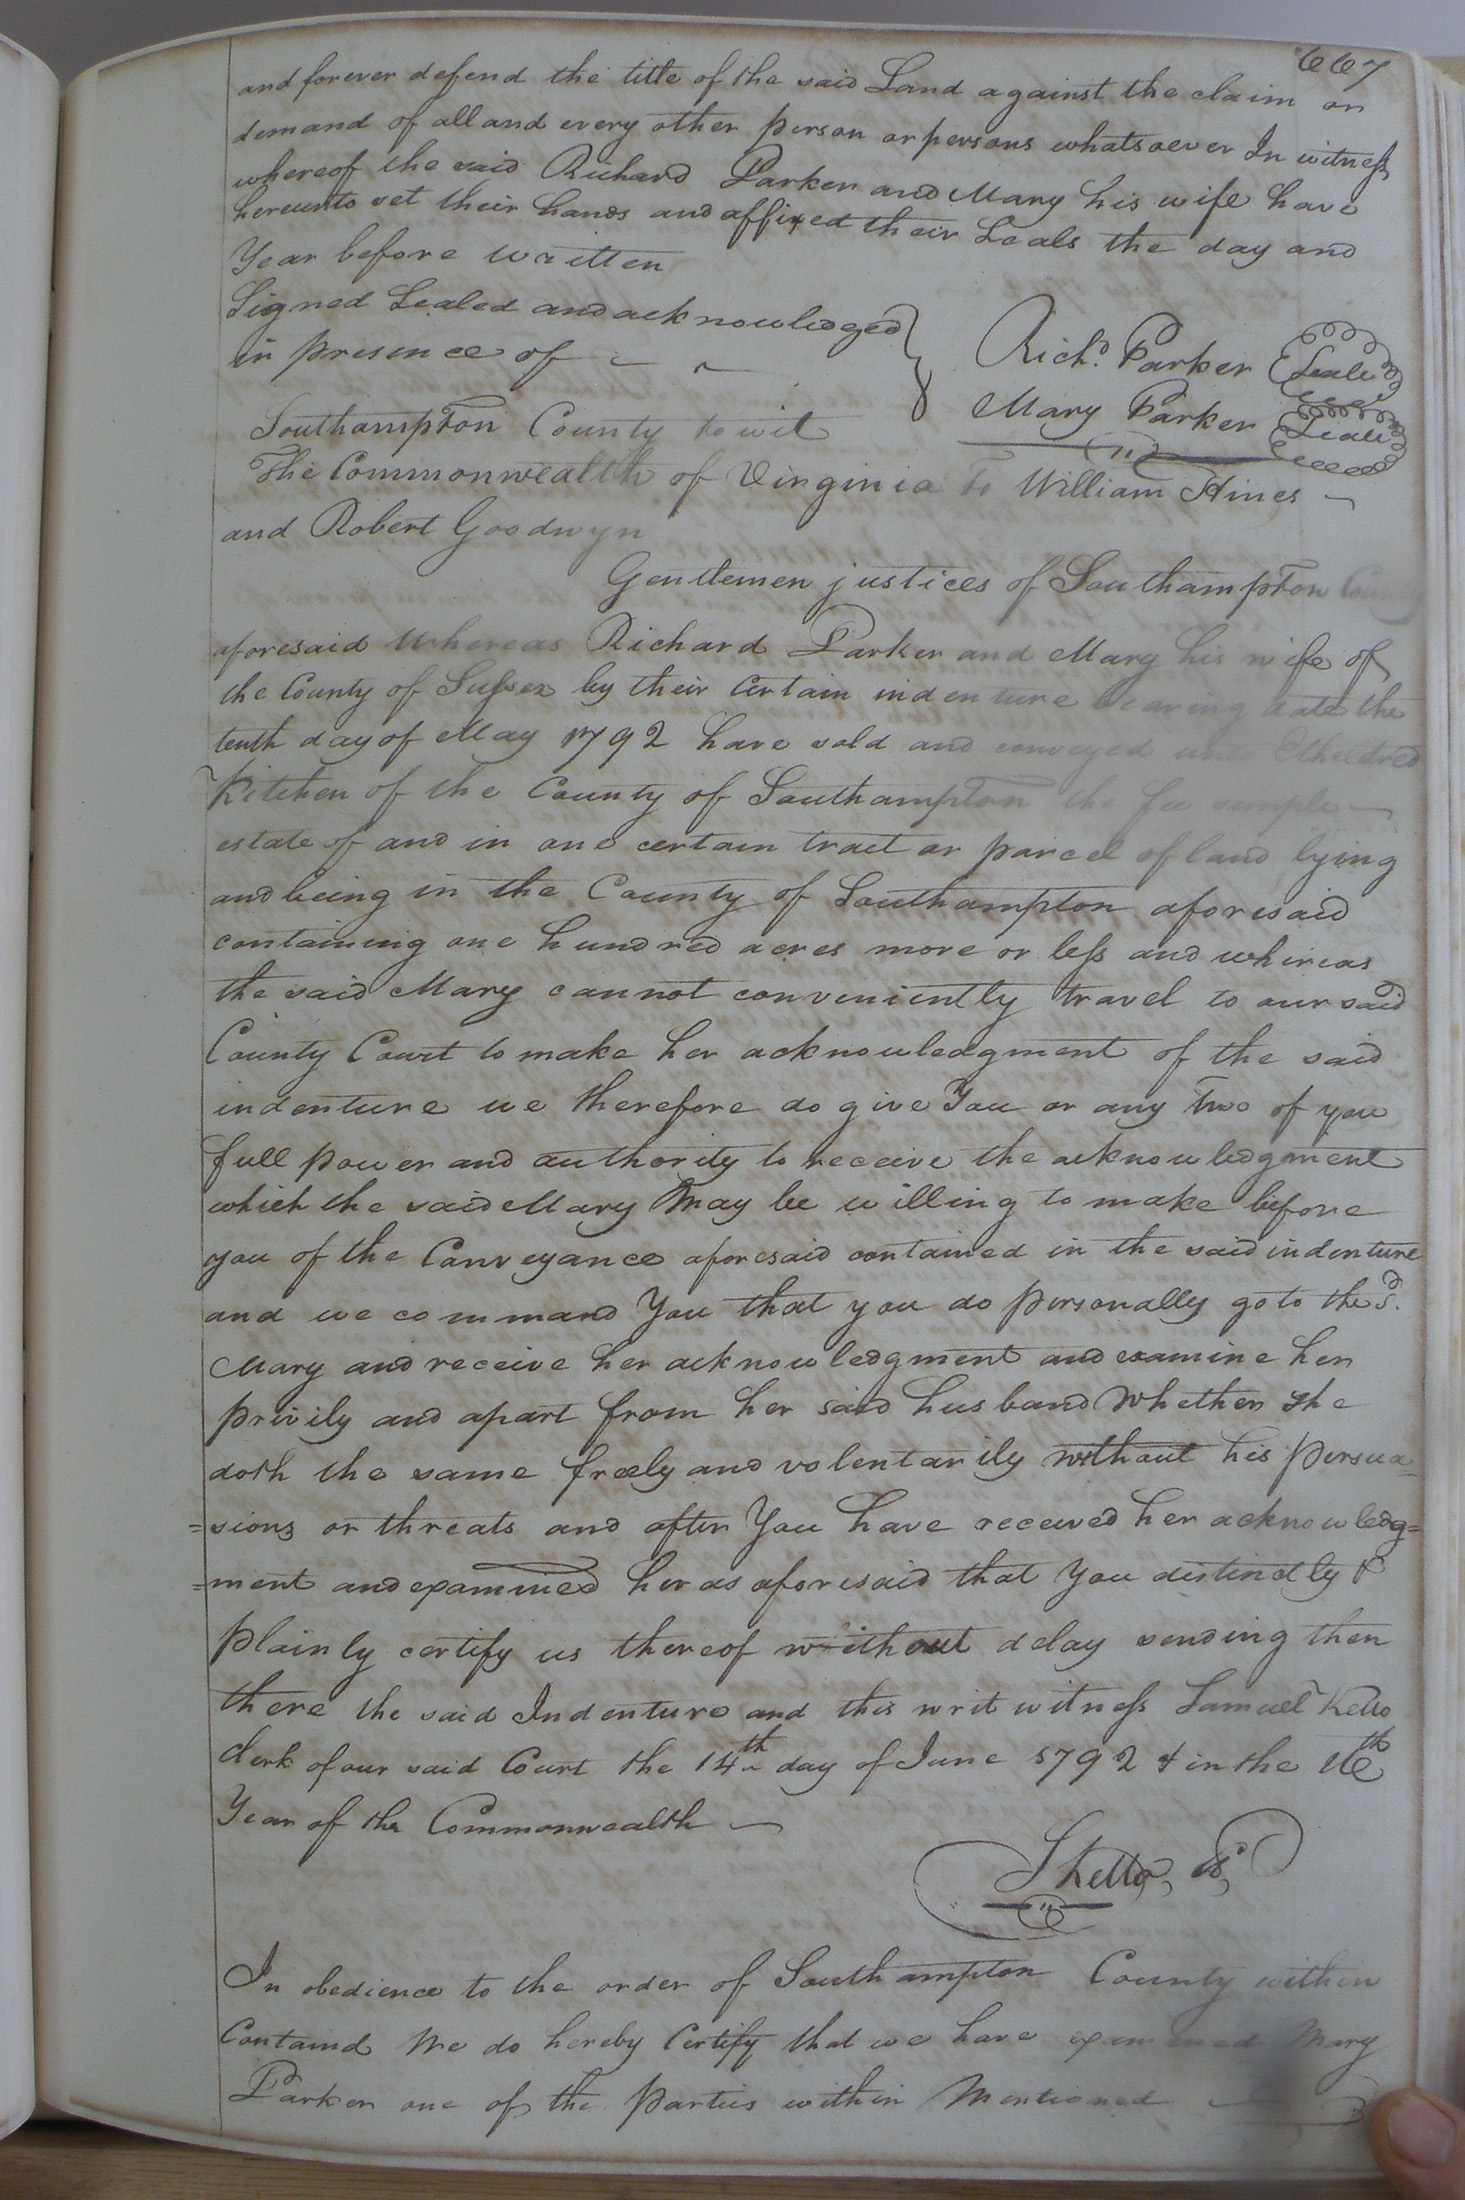 667
and forever defend the title of the said Land against the claim or
demand of all and every other person or persons whatsoever In witness
whereof the said Richard Parker and Mary his wife have
hereunto set their hands and affixed their Seals the day and
Year before written
Signed Sealed and acknowledged
in presence of
Richd. Parker Seale
Mary Parker Seale
Southampton County to wit
The Commonwealth of Virginia To William Hines
and Robert Goodwyn
Gentlemen justices of Southampton County
aforesaid Whereas Richard Parker and Mary his wife of
the County of Sussex by their certain indenture bearing date the
tenth day of May 1792 have sold and conveyed unto Etheldred
Kitchen of the County of Southampton the fee simple
estate of and in one certain tract or parcel of land lying
and being in the County of Southampton aforesaid
containing one hundred acres more or less and whereas
the said Mary cannot conveniently travel to our said
County Court to make her acknowledgment of the said
indenture we therefore do give You or any Two of you
full power and authority to receive the acknowledgment
which the said Mary May be willing to make before
you of the Conveyance aforesaid contained in the said indenture
and we command You that you do personally go to the sd.
Mary and receive her acknowledgment and examine her
privily and apart from her said husband Whether she
doth the same freely and volentarily without his persua=
=sions or threats and after You have received her acknowledg=
=ment and examined her as aforesaid that You distinctly &
plainly certify us thereof without delay sending then
there the said Indenture and this writ witness Samuel Kello
clerk of our said Court the 14th day of June 1792 & in the 16th
Year of the Commonwealth
S Kello
In obedience to the order of Southampton County within
Containd We do hereby Certify that we have examined Mary
Parker one of the Parties within Mentioned